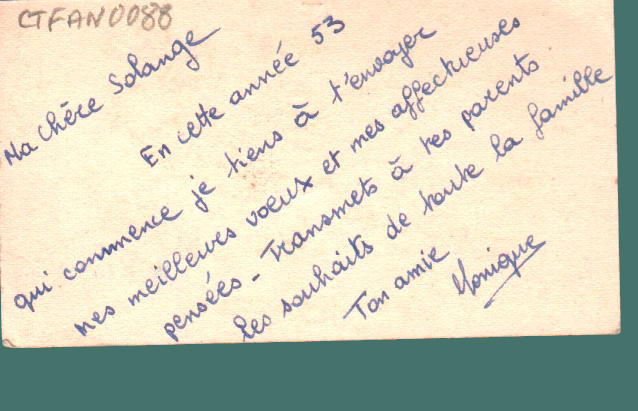 CTFAN0088
Ma chère Solange
En cette année 53
qui commence je tiens à t'envoyer
mes meilleures voeux et mes affectueuses
pensées - Transmets à tes parents
les souhaits de toute la famille
Ton amie
Monique